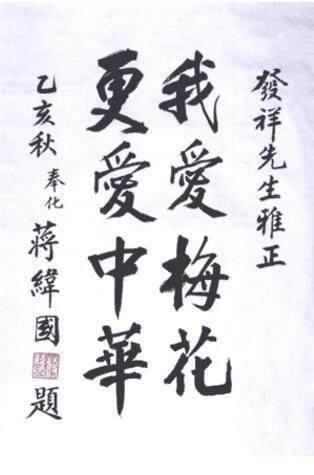 發祥先生雅正
我愛梅花
更愛中華
乙亥秋 奉化 蔣緯國 題